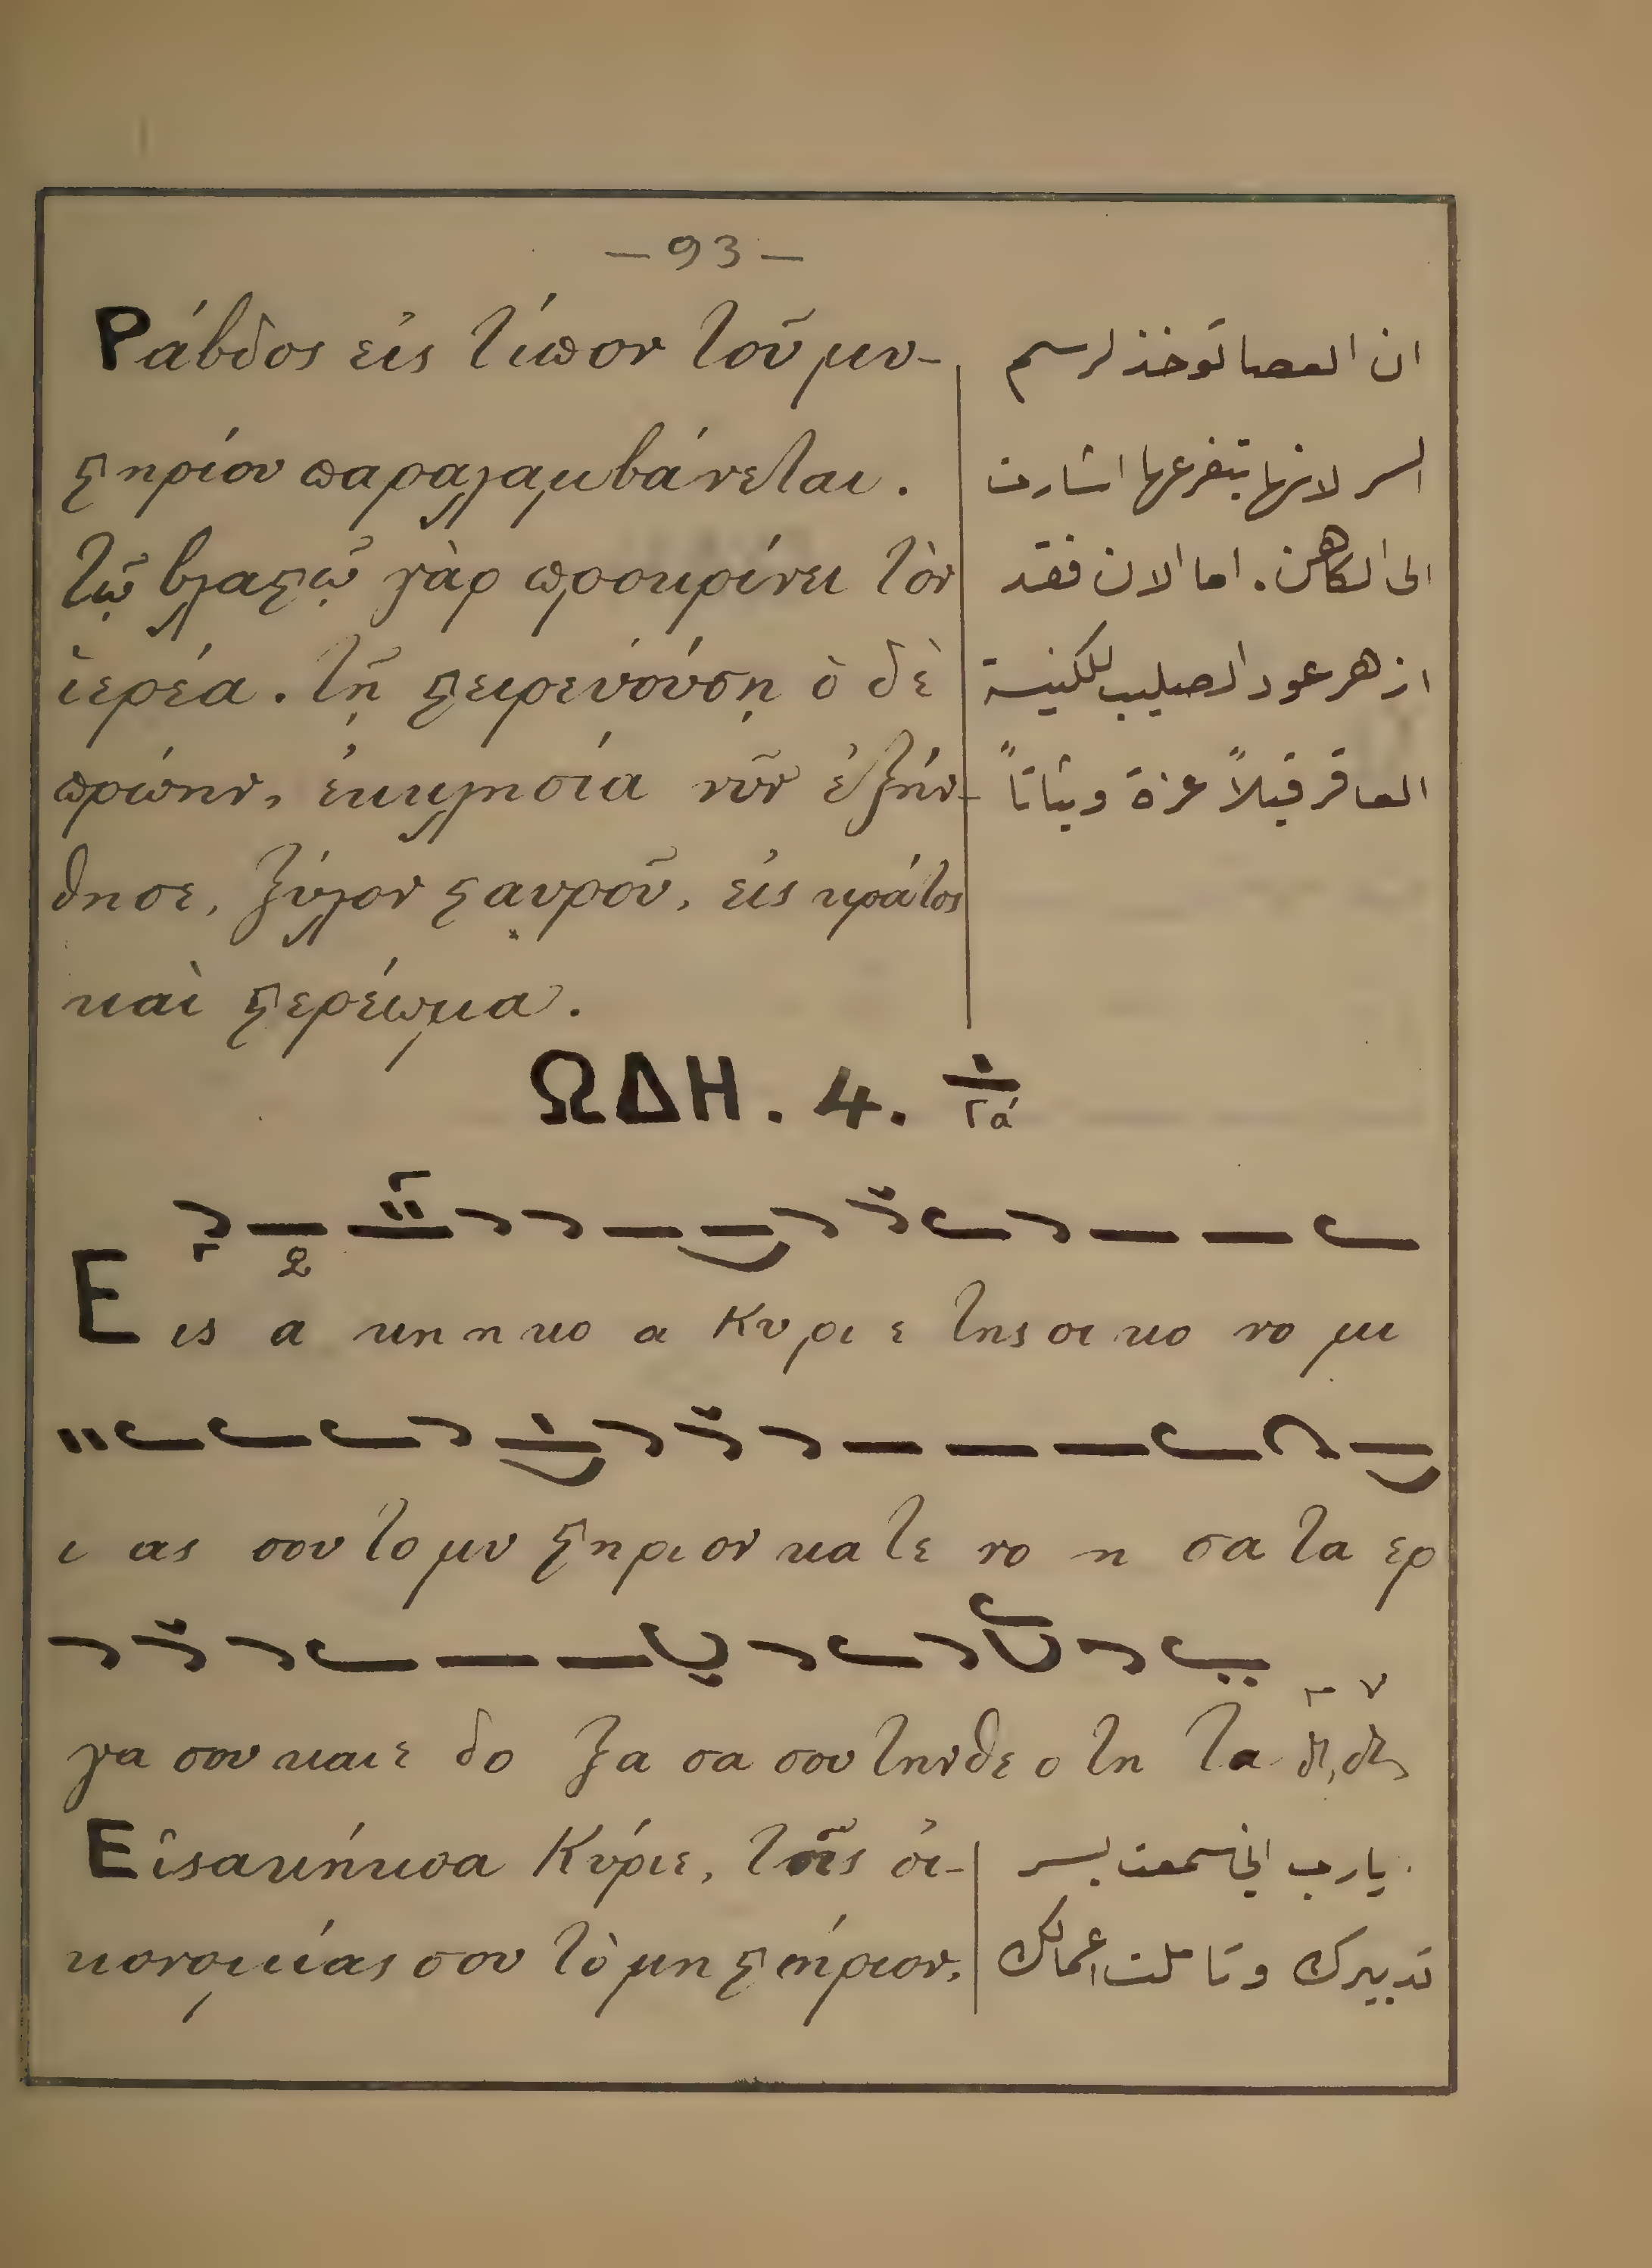 — 93 —
Ράβδος εἰς τίπον τοῦ μυ-
στηρίου παραλαμβάνεται.
τῷ βλαστῷ γὰρ προκρίνει τὸν
ἱερέα. τῇ στειρευούσῃ ὁ δὲ
πρώην, ἐκκλησία νῦν ἐξήν-
θησε, ξύλον σταυροῦ, εἰς κράτος
καὶ στερέωμα.
ان العصا توخذ لرسم
السر لانها بتفرعها اشارت
الى الكاهن. اما الان فقد
ازهر عود الصليب للكنيسة
العاقر قبلاً عزة وثباتاً
ΩΔΗ. 4. Γα
Ε ις α κη η κο α Κυ ρι ε της οι κο νο μι
ι ας σου το μυ στη ρι ον κα τε νο η σα τα ερ
γα σου και ε δο ξα σα σου την θε ο τη τα
Εἰσακήκοα Κύριε, τῆς οἰ-
κονομίας σου τὸ μηστήριον,
يارب اني سمعت بسر
تدبيرك وتاملت اعمالك